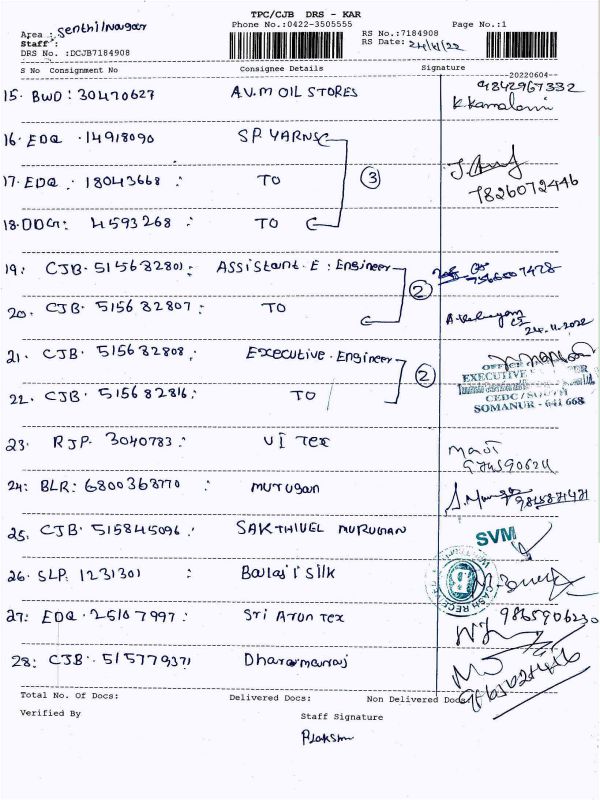 TPC/CJB DRS - KAR
Area : Senthil Nagar Phone No.:0422-3505555 Page No.:1
Staff: RS No.:7184908
DRS No. :DCJB7184908 RS Date: 24/11/22
S No Consignment No Consignee Details Signature
--20220604--
15. BWD: 30470627 A.V.M OIL STORES 9842967332
K.Kamalani
16. EDQ . 14918090 S.P. YARNS
17. EDQ . 18043668 : TO 3 7826072446
18. DDG: 4593268 : TO
19: CJB. 515682801: Assistant. E. Engineer
20. CJB. 515682807: TO 2 24.11.2022
21. CJB. 515682808: Executive. Engineer
OFFICE
EXECUTIVE
22. CJB. 515682816: TO 2 CEDC / SOUTH
SOMANUR - 641 668
23. RJP. 3040783: VI Tex
24: BLR: 6800368770 : Murugan
25. CJB: 515845096: SAKTHIVEL MURUGAN SVM
26. SLP. 1231301 : Balaji Silk
27: EDQ. 25107997: Sri Arun Tex 9865906230
28: CJB. 515779371 Dharmaraj
Total No. Of Docs: Delivered Docs: Non Delivered Docs:
Verified By Staff Signature